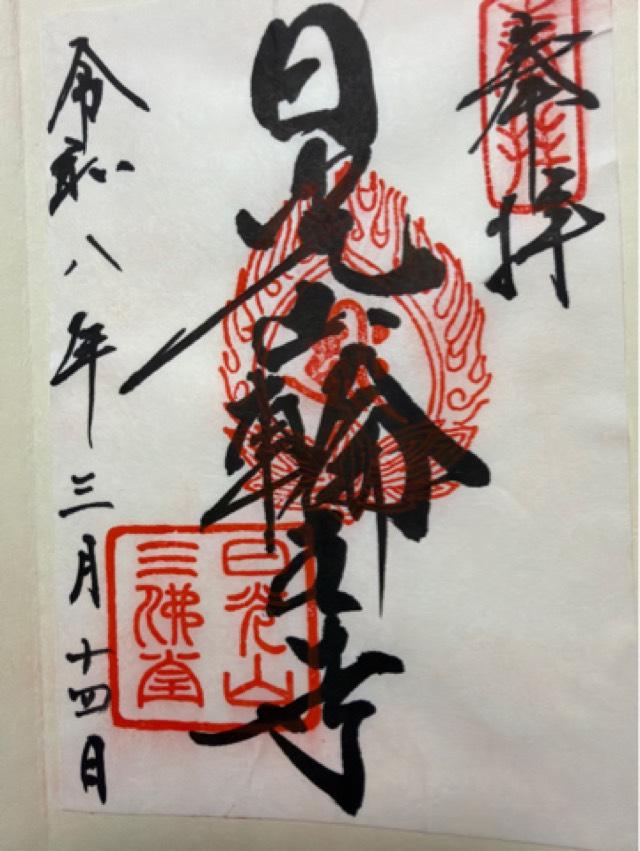 奉拝
日光山輪王寺
日光山
三佛堂
令和八年三月十四日